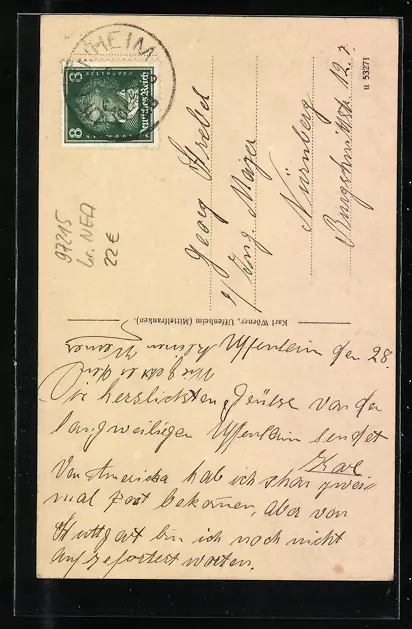 UFFENHEIM
8 8
Deutsches Reich
u 53271
Georg Strebel
b/ Ing. Mayer
Nürnberg
Burgschmittstr. 12.?
97215
br. NEA
22 €
Karl Wörner, Uffenheim (Mittelfranken).
Uffenheim den 28.
Die herzlichsten Grüße von den
langweiligen Uffenheim sendet
Karl
Von Amerika hab ich schon zwei
mal Post bekomen, aber von
Stuttgart bin ich noch nicht
aufgefortert worten.